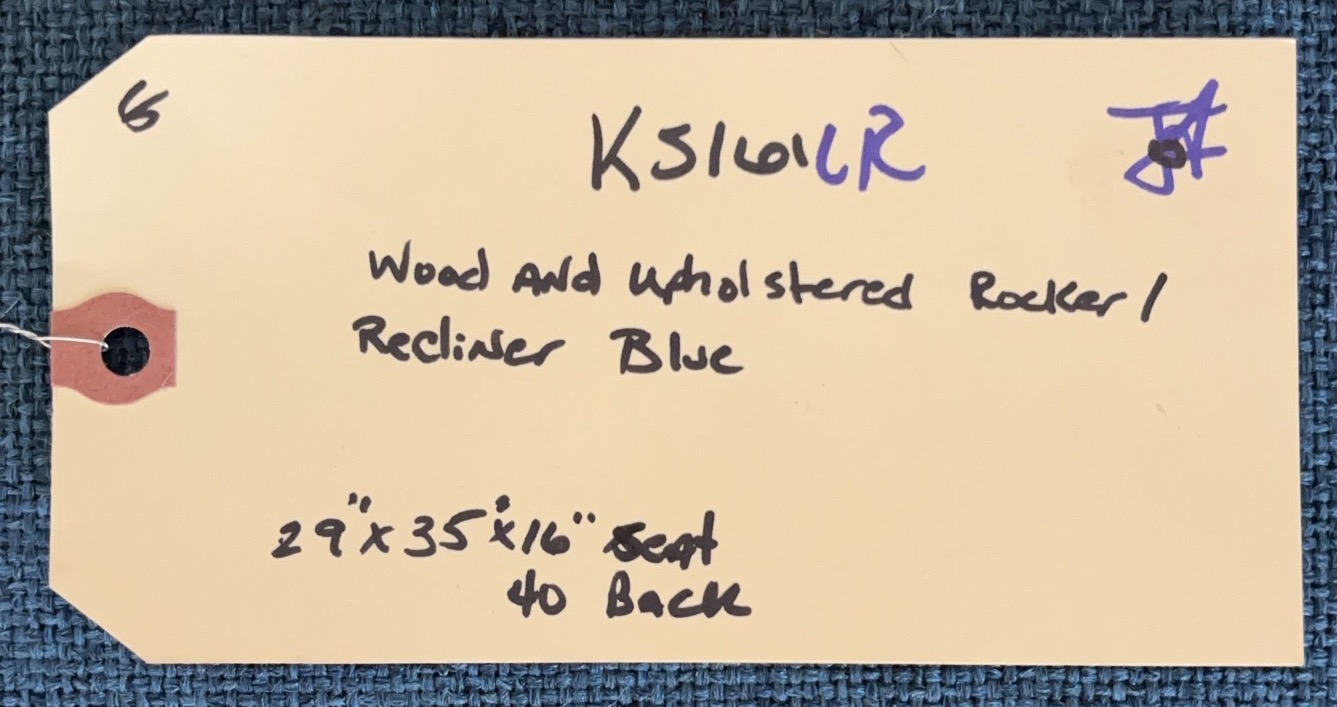 KS1601LR
Wood And Upholstered Rocker/
Recliner Blue
29"x35"x16" Seat
40 Back